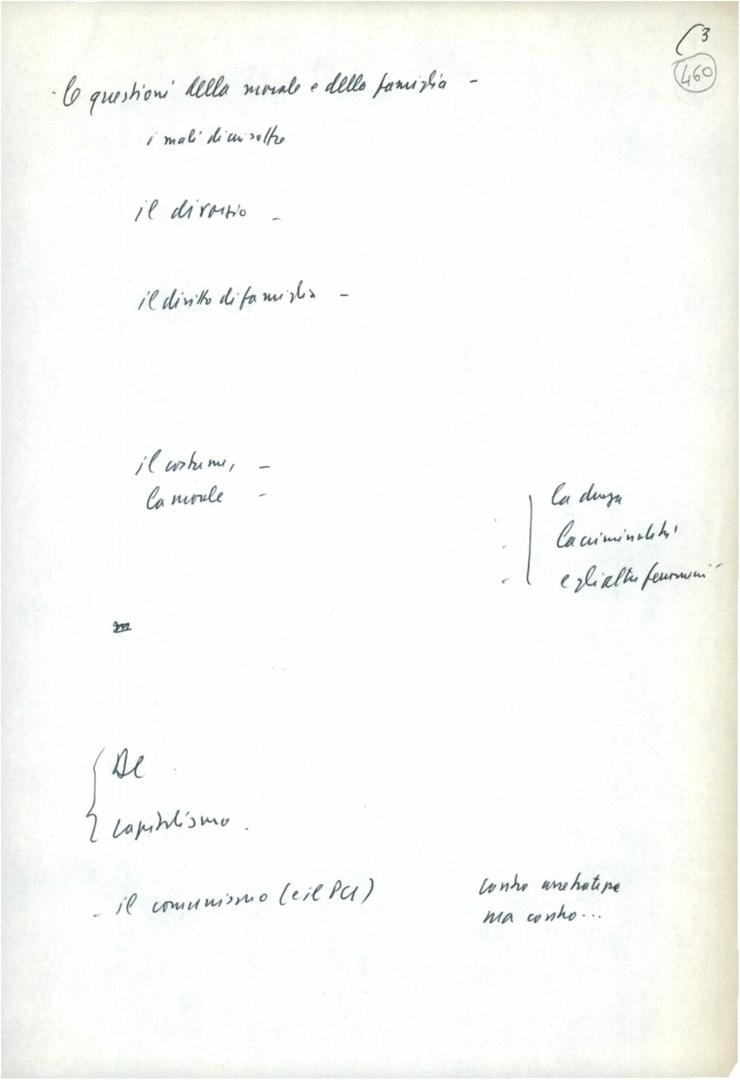 (3
460
- le questioni della morale e della famiglia -
i mali di cui soffre
il divorzio -
il diritto di famiglia -
il costume, -
la morale -
la droga
la criminalità
e gli altri fenomeni
Al
capitalismo.
- il comunismo (e il PCI)
contro
ma contro...